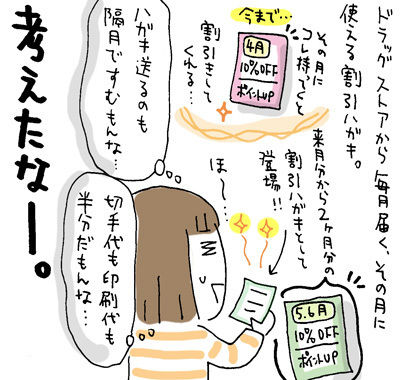 ドラッグストアから毎月届く、その月に
使える割引ハガキ。
今まで…
4月
10%OFF
ポイントUP
その月に
コレ持ってくと
割引きして
くれる…
来月分から2ヶ月分の
割引ハガキとして
登場!!
5.6月
10%OFF
ポイントUP
ほ〜…
ハガキ送るのも
隔月ですむもんな…
切手代も印刷代も
半分だもんな…
考えたなー。